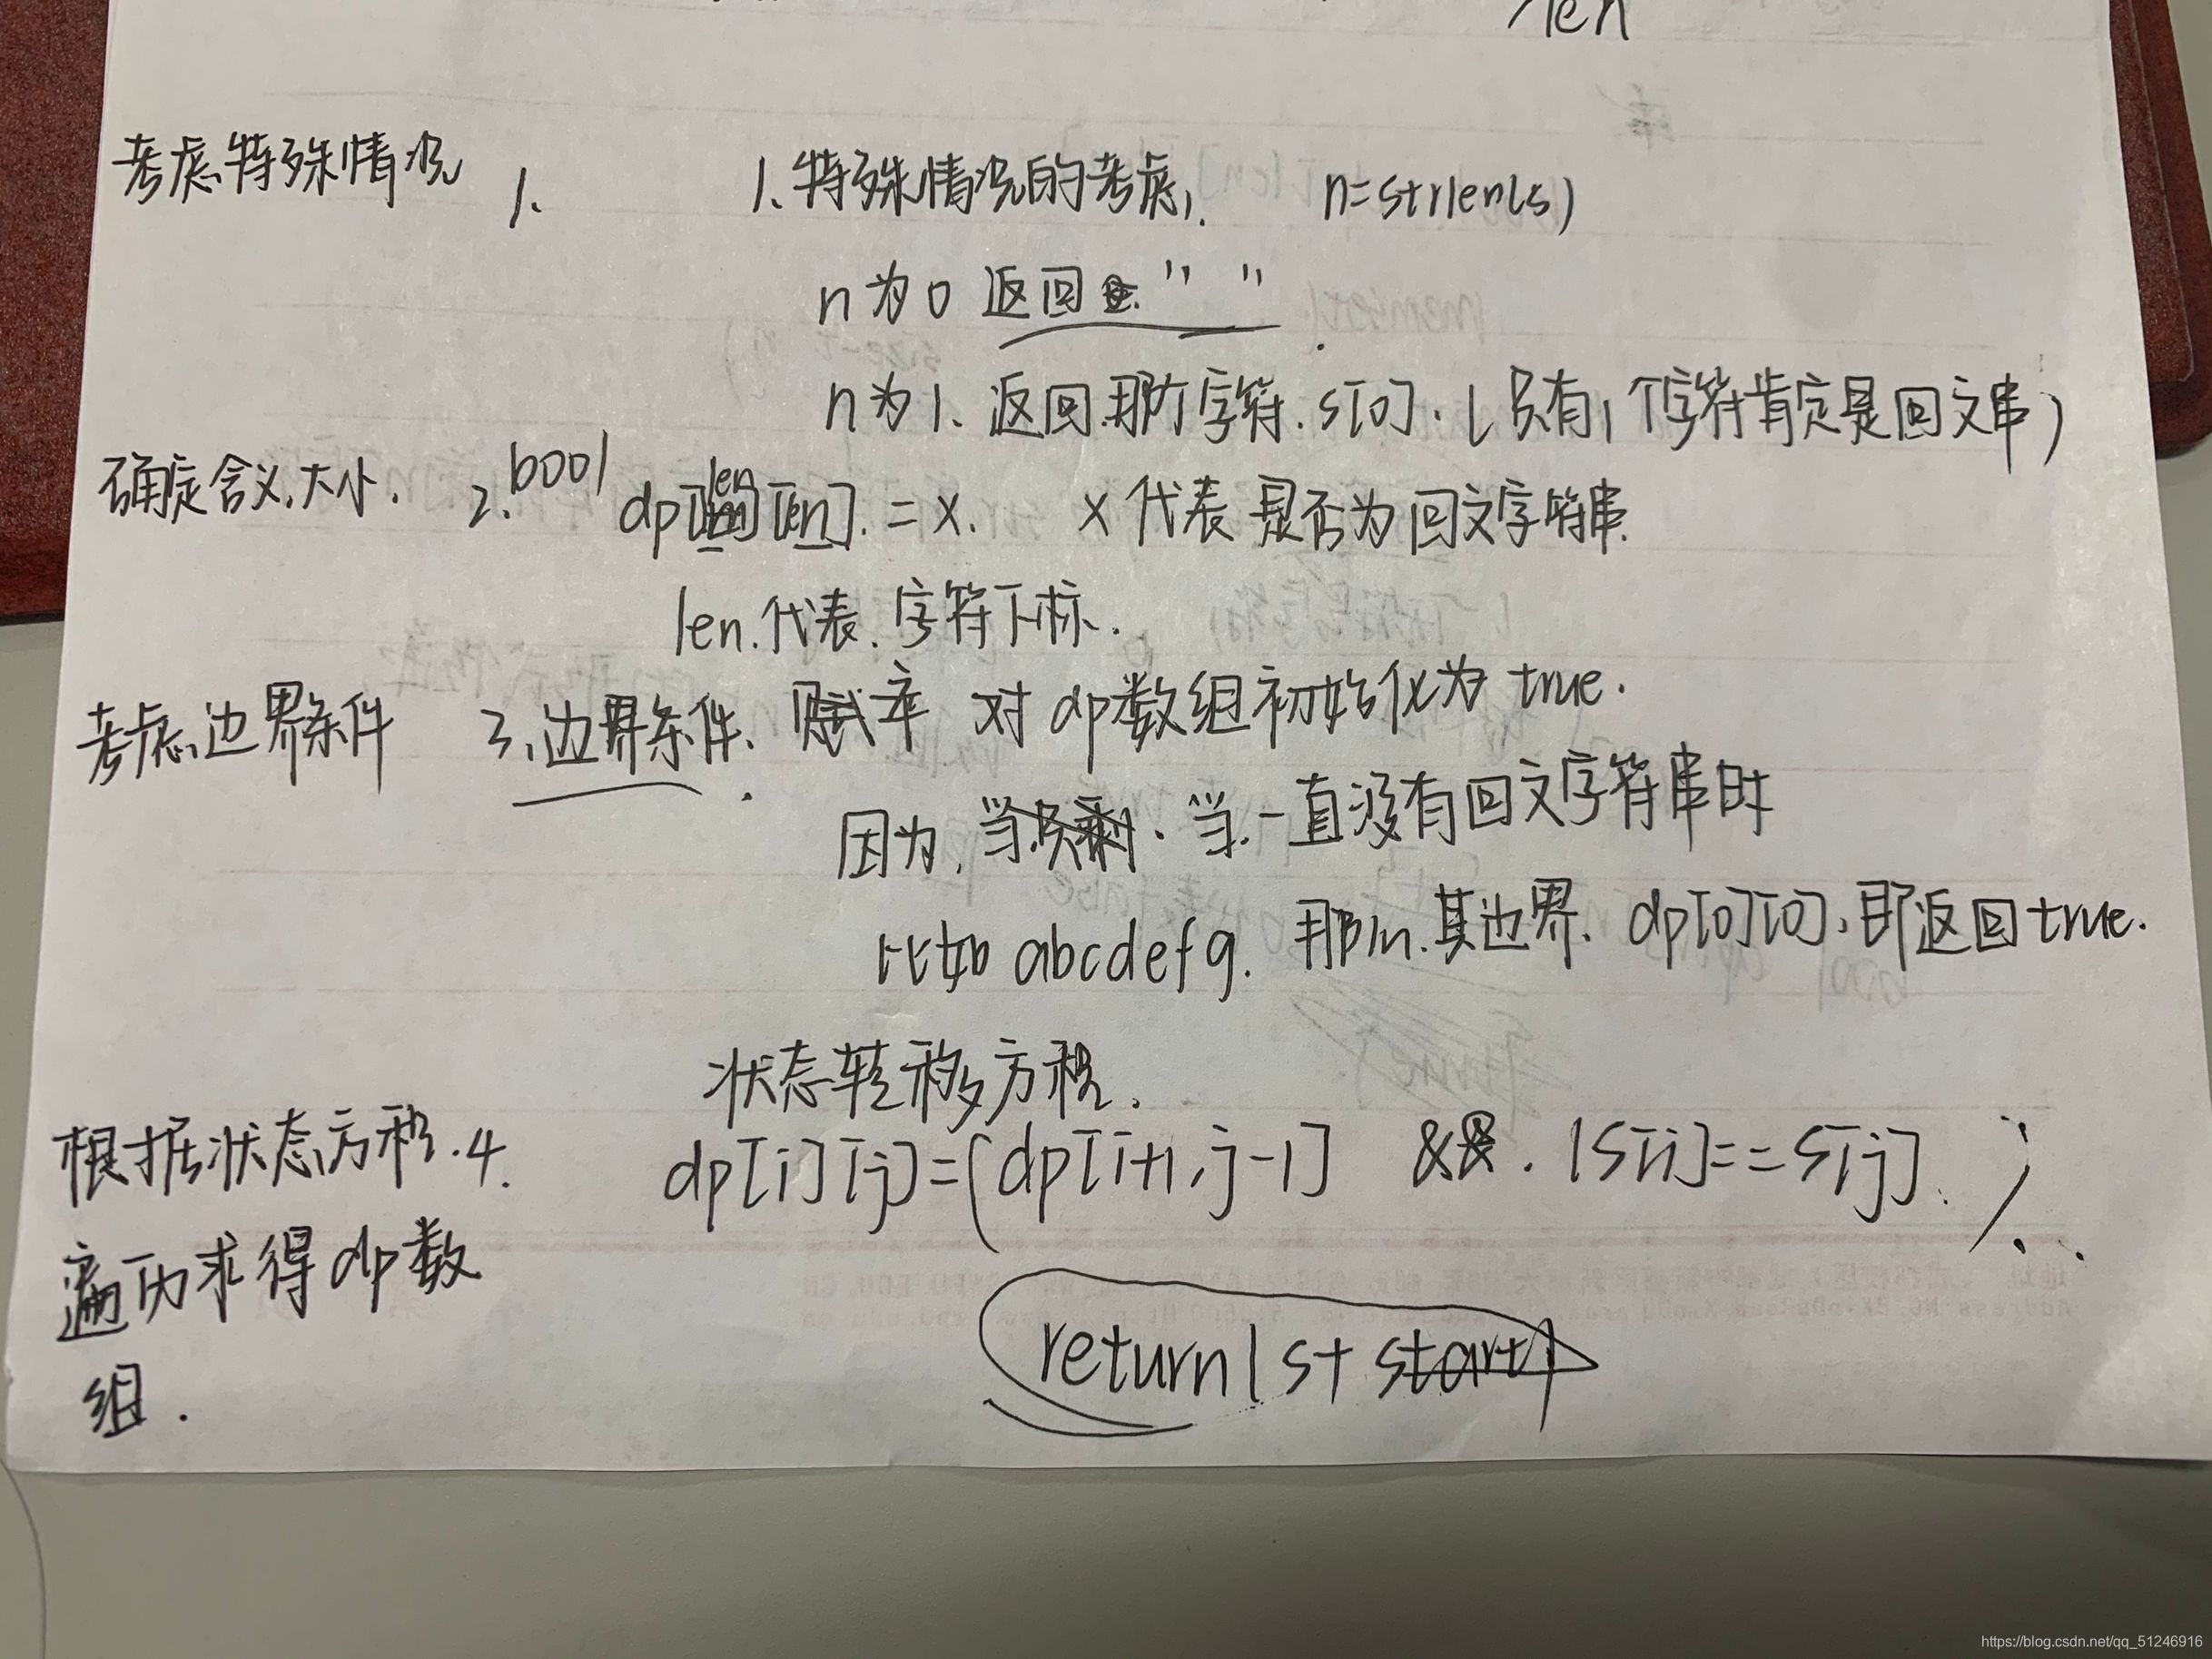 len
考虑特殊情况 1、 1、特殊情况的考虑, n=strlen(s)
n为0 返回 " "
n为1、返回那个字符. s[0]. (只有1个字符肯定是回文串)
确定含义,大小. 2、bool dp[len][len]. = x. x代表是否为回文字符串.
len.代表.字符下标.
考虑边界条件 3、边界条件、 对dp数组初始化为true.
因为, 当一直没有回文字符串时
比如 abcdefg. 那么.其边界、dp[0][0],即返回true.
状态转移方程.
根据状态方程.4. dp[i][j]=(dp[i+1,j-1] && . (s[i]==s[j]. );
遍历求得dp数
组.
return(s+start)
https://blog.csdn.net/qq_51246916